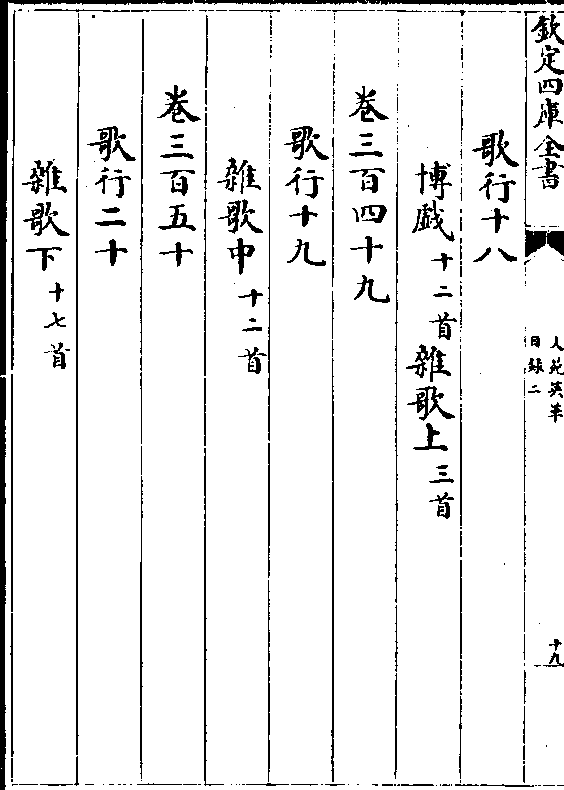 欽定四庫全書
文苑英華
目録二
十九
歌行十八
博戯十二首雜歌上三首
巻三百四十九
歌行十九
雜歌中十二首
巻三百五十
歌行二十
雜歌下十七首